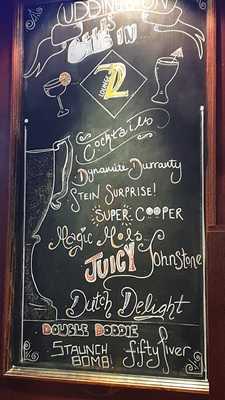 UDDINGTON
LET'S
GET IN...
LOUNGE
2
Cocktails
Dynamite Durranty
STEIN SURPRISE!
SUPER COOPER
Magic Mols
JUICY Johnstone
Dutch Delight
DOUBLE DODDIE
STAUNCH BOMB!
fifty fiver